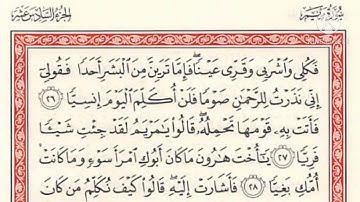 سُورَةُ مَرْيَمَ الجُزْءُ السَّادِسَ عَشَرَ
فَكُلِي وَاشْرَبِي وَقَرِّي عَيْنًا ۖ فَإِمَّا تَرَيِنَّ مِنَ الْبَشَرِ أَحَدًا فَقُولِي
إِنِّي نَذَرْتُ لِلرَّحْمَٰنِ صَوْمًا فَلَنْ أُكَلِّمَ الْيَوْمَ إِنسِيًّا ٢٦
فَأَتَتْ بِهِ قَوْمَهَا تَحْمِلُهُ ۖ قَالُوا يَٰمَرْيَمُ لَقَدْ جِئْتِ شَيْـًٔا
فَرِيًّا ٢٧ يَٰٓأُخْتَ هَٰرُونَ مَا كَانَ أَبُوكِ امْرَأَ سَوْءٍ وَمَا كَانَتْ
أُمُّكِ بَغِيًّا ٢٨ فَأَشَارَتْ إِلَيْهِ ۖ قَالُوا كَيْفَ نُكَلِّمُ مَن كَانَ